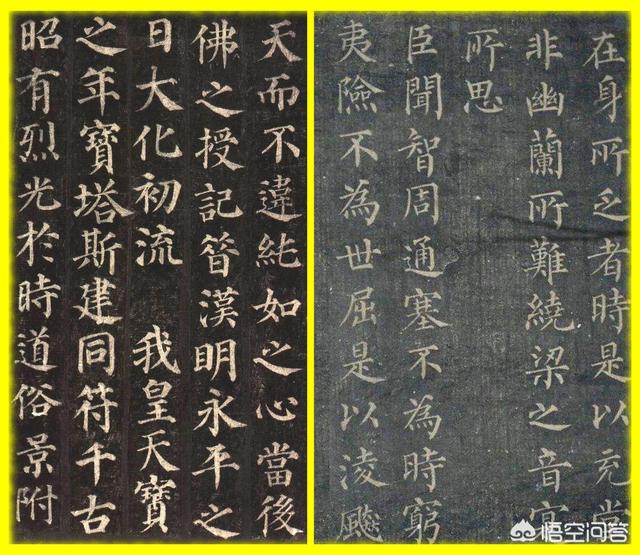 天而不違純如之心當後
佛之授記昔漢明永平之
日大化初流 我皇天寶
之年寶塔斯建同符千古
昭有烈光於時道俗景附
在身所乏者時是以充堂
非幽蘭所難繞梁之音實
所思
臣聞智周通塞不為時窮
夷險不為世屈是以淩飈
悟空问答